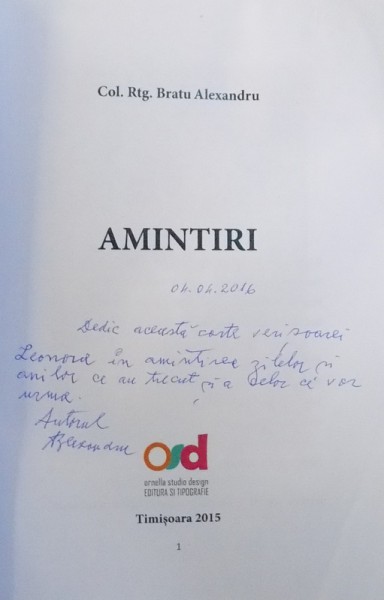 Col. Rtg. Bratu Alexandru
AMINTIRI
04.04.2016
Dedic această carte verișoarei
Leonora în amintirea zilelor și
anilor ce au trecut și a celor ce vor
urma.
Autorul
Alexandru
osd
ornella studio design
EDITURA SI TIPOGRAFIE
Timișoara 2015
1